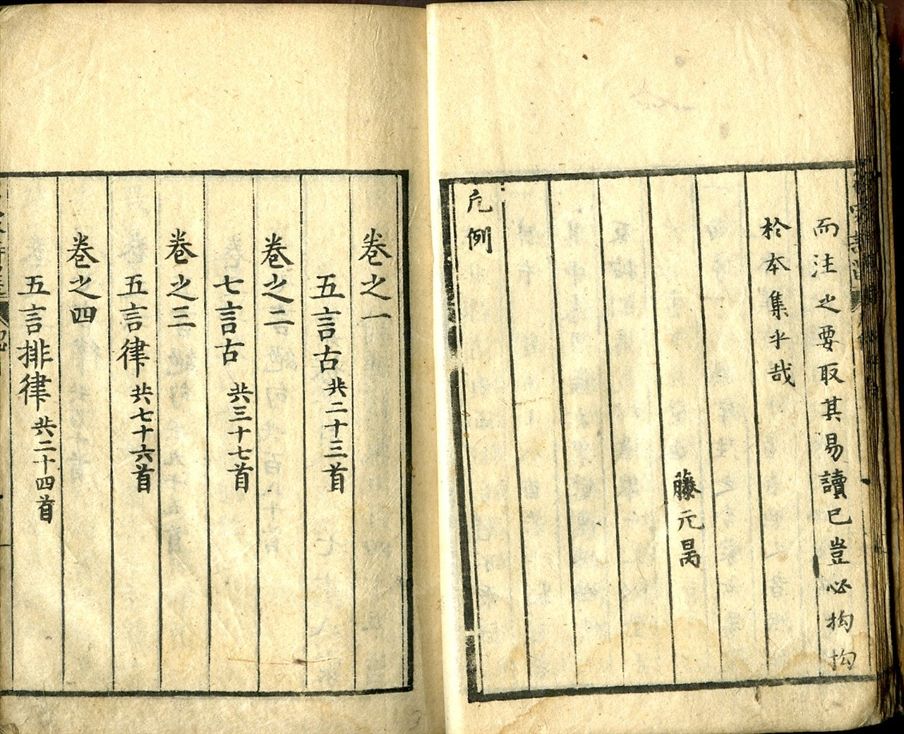 而注之要取其易讀已豈必拘拘
於本集乎哉
藤元昺
凡例
卷之一
五言古 共二十三首
卷之二
七言古 共三十七首
卷之三
五言律 共七十六首
卷之四
五言排律 共二十四首